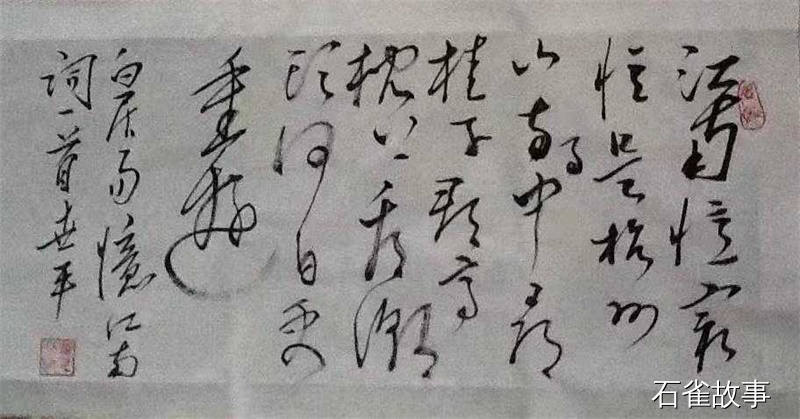 江南憶最
憶是杭州
山寺月中尋
桂子郡亭
枕上看潮
頭何日更
重遊
白居易憶江南
詞一首 平
石雀故事